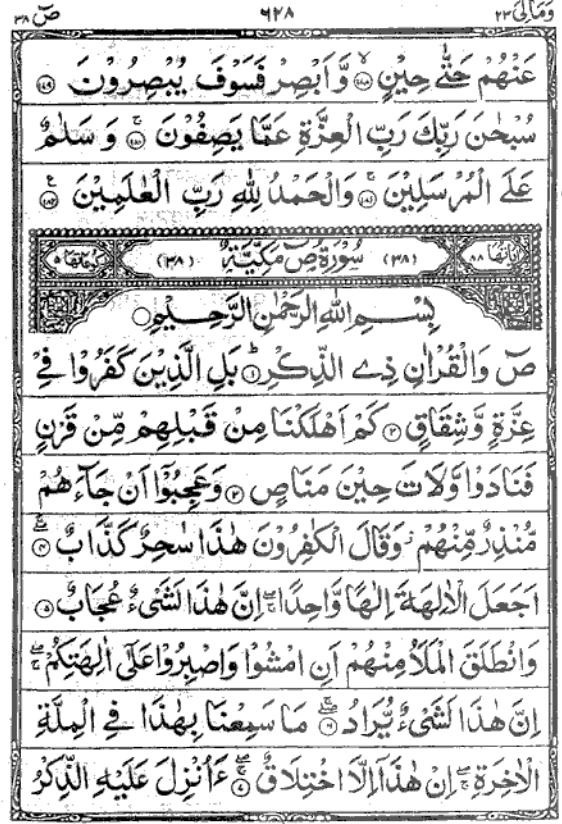 وَمَالِىَ ٢٣ ٦٢٨ صٓ ٣٨
عَنْهُمْ حَتّٰى حِيْنٍ ۙ‏﴿۱۷۸﴾ وَّاَبْصِرْ فَسَوْفَ يُبْصِرُوْنَ ﴿۱۷۹﴾
سُبْحٰنَ رَبِّكَ رَبِّ الْعِزَّةِ عَمَّا يَصِفُوْنَ ۚ‏﴿۱۸۰﴾ وَ سَلٰمٌ
عَلَى الْمُرْسَلِيْنَ ۚ‏﴿۱۸۱﴾ وَالْحَمْدُ لِلّٰهِ رَبِّ الْعٰلَمِيْنَ ﴿۱۸۲﴾ ع
اٰيَاتُهَا ٨٨ (٣٨) سُوْرَةُ صٓ مَكِّيَّةٌ (٣٨) رُكُوْعَاتُهَا ٥
بِسْمِ اللّٰهِ الرَّحْمٰنِ الرَّحِيْمِ
صٓ وَالْقُرْاٰنِ ذِى الذِّكْرِ ؕ‏﴿۱﴾ بَلِ الَّذِيْنَ كَفَرُوْا فِىْ
عِزَّةٍ وَّشِقَاقٍ ﴿۲﴾ كَمْ اَهْلَكْنَا مِنْ قَبْلِهِمْ مِّنْ قَرْنٍ
فَنَادَوْا وَّلَاتَ حِيْنَ مَنَاصٍ ﴿۳﴾ وَعَجِبُوْۤا اَنْ جَآءَهُمْ
مُّنْذِرٌ مِّنْهُمْ ز وَقَالَ الْكٰفِرُوْنَ هٰذَا سٰحِرٌ كَذَّابٌ ۖۚ‏﴿۴﴾
اَجَعَلَ الْاٰلِهَةَ اِلٰهًا وَّاحِدًا ۖۚ اِنَّ هٰذَا لَشَىْءٌ عُجَابٌ ﴿۵﴾
وَانْطَلَقَ الْمَلَاُ مِنْهُمْ اَنِ امْشُوْا وَاصْبِرُوْا عَلٰٓى اٰلِهَتِكُمْ ۖۚ
اِنَّ هٰذَا لَشَىْءٌ يُّرَادُ ۖۚ‏﴿۶﴾ مَا سَمِعْنَا بِهٰذَا فِى الْمِلَّةِ
الْاٰخِرَةِ ۖۚ اِنْ هٰذَاۤ اِلَّا اخْتِلَاقٌ ۖۚ‏﴿۷﴾ ءَاُنْزِلَ عَلَيْهِ الذِّكْرُ